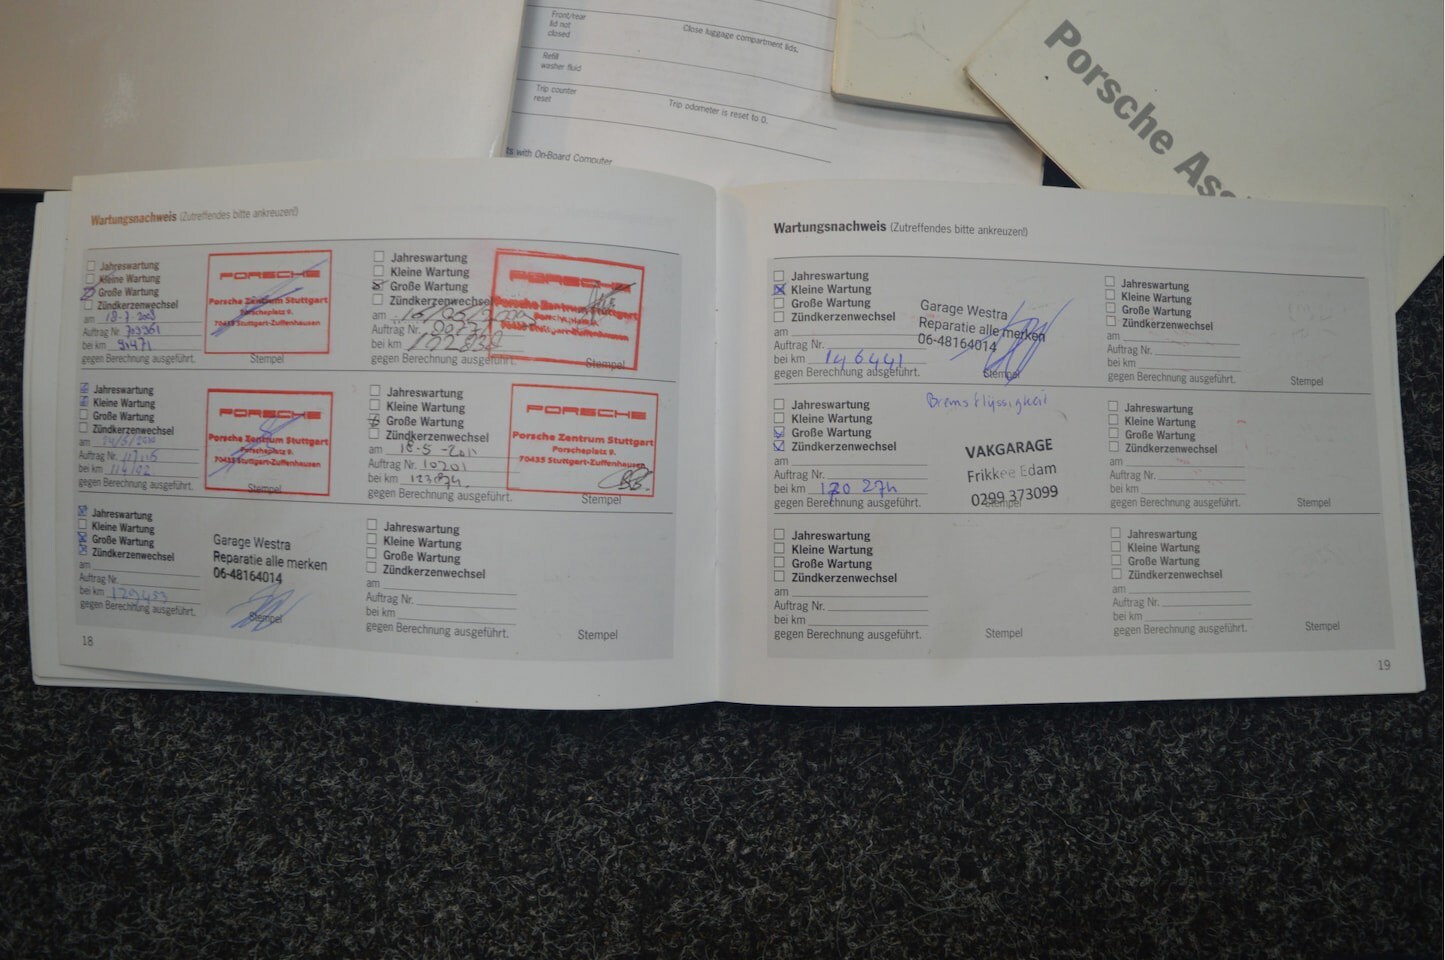 Front/rear
lid not
closed
Close luggage compartment lids.
Refill
washer fluid
Trip counter
reset
Trip odometer is reset to 0.
with On-Board Computer
Porsche
Wartungsnachweis (Zutreffendes bitte ankreuzen!)
Jahreswartung
Kleine Wartung
Große Wartung
Zündkerzenwechsel
am
Auftrag Nr.
bei km
gegen Berechnung ausgeführt.
PORSCHE
Porsche Zentrum Stuttgart
Porscheplatz 9.
70435 Stuttgart-Zuffenhausen
Stempel
Jahreswartung
Kleine Wartung
Große Wartung
Zündkerzenwechsel
am
Auftrag Nr.
bei km
gegen Berechnung ausgeführt.
PORSCHE
Porsche Zentrum Stuttgart
Stempel
Jahreswartung
Kleine Wartung
Große Wartung
Zündkerzenwechsel
am
Auftrag Nr.
bei km
gegen Berechnung ausgeführt.
PORSCHE
Porsche Zentrum Stuttgart
Porscheplatz 9.
70435 Stuttgart-Zuffenhausen
Stempel
Jahreswartung
Kleine Wartung
Große Wartung
Zündkerzenwechsel
am 18-5-2011
Auftrag Nr. 10201
bei km
gegen Berechnung ausgeführt.
PORSCHE
Porsche Zentrum Stuttgart
Porscheplatz 9.
70435 Stuttgart-Zuffenhausen
Stempel
Jahreswartung
Kleine Wartung
Große Wartung
Zündkerzenwechsel
am
Auftrag Nr.
bei km
gegen Berechnung ausgeführt.
Garage Westra
Reparatie alle merken
06-48164014
Stempel
Jahreswartung
Kleine Wartung
Große Wartung
Zündkerzenwechsel
am
Auftrag Nr.
bei km
gegen Berechnung ausgeführt.
Stempel
18
Wartungsnachweis (Zutreffendes bitte ankreuzen!)
Jahreswartung
Kleine Wartung
Große Wartung
Zündkerzenwechsel
am
Auftrag Nr.
bei km 146441
gegen Berechnung ausgeführt.
Garage Westra
Reparatie alle merken
06-48164014
Stempel
Jahreswartung
Kleine Wartung
Große Wartung
Zündkerzenwechsel
am
Auftrag Nr.
bei km
gegen Berechnung ausgeführt.
Stempel
Jahreswartung
Kleine Wartung
Große Wartung
Zündkerzenwechsel
am
Auftrag Nr.
bei km
gegen Berechnung ausgeführt.
Bremsflyssigkeit
VAKGARAGE
Frikkee Edam
0299 373099
Stempel
Jahreswartung
Kleine Wartung
Große Wartung
Zündkerzenwechsel
am
Auftrag Nr.
bei km
gegen Berechnung ausgeführt.
Stempel
Jahreswartung
Kleine Wartung
Große Wartung
Zündkerzenwechsel
am
Auftrag Nr.
bei km
gegen Berechnung ausgeführt.
Stempel
Jahreswartung
Kleine Wartung
Große Wartung
Zündkerzenwechsel
am
Auftrag Nr.
bei km
gegen Berechnung ausgeführt.
Stempel
19